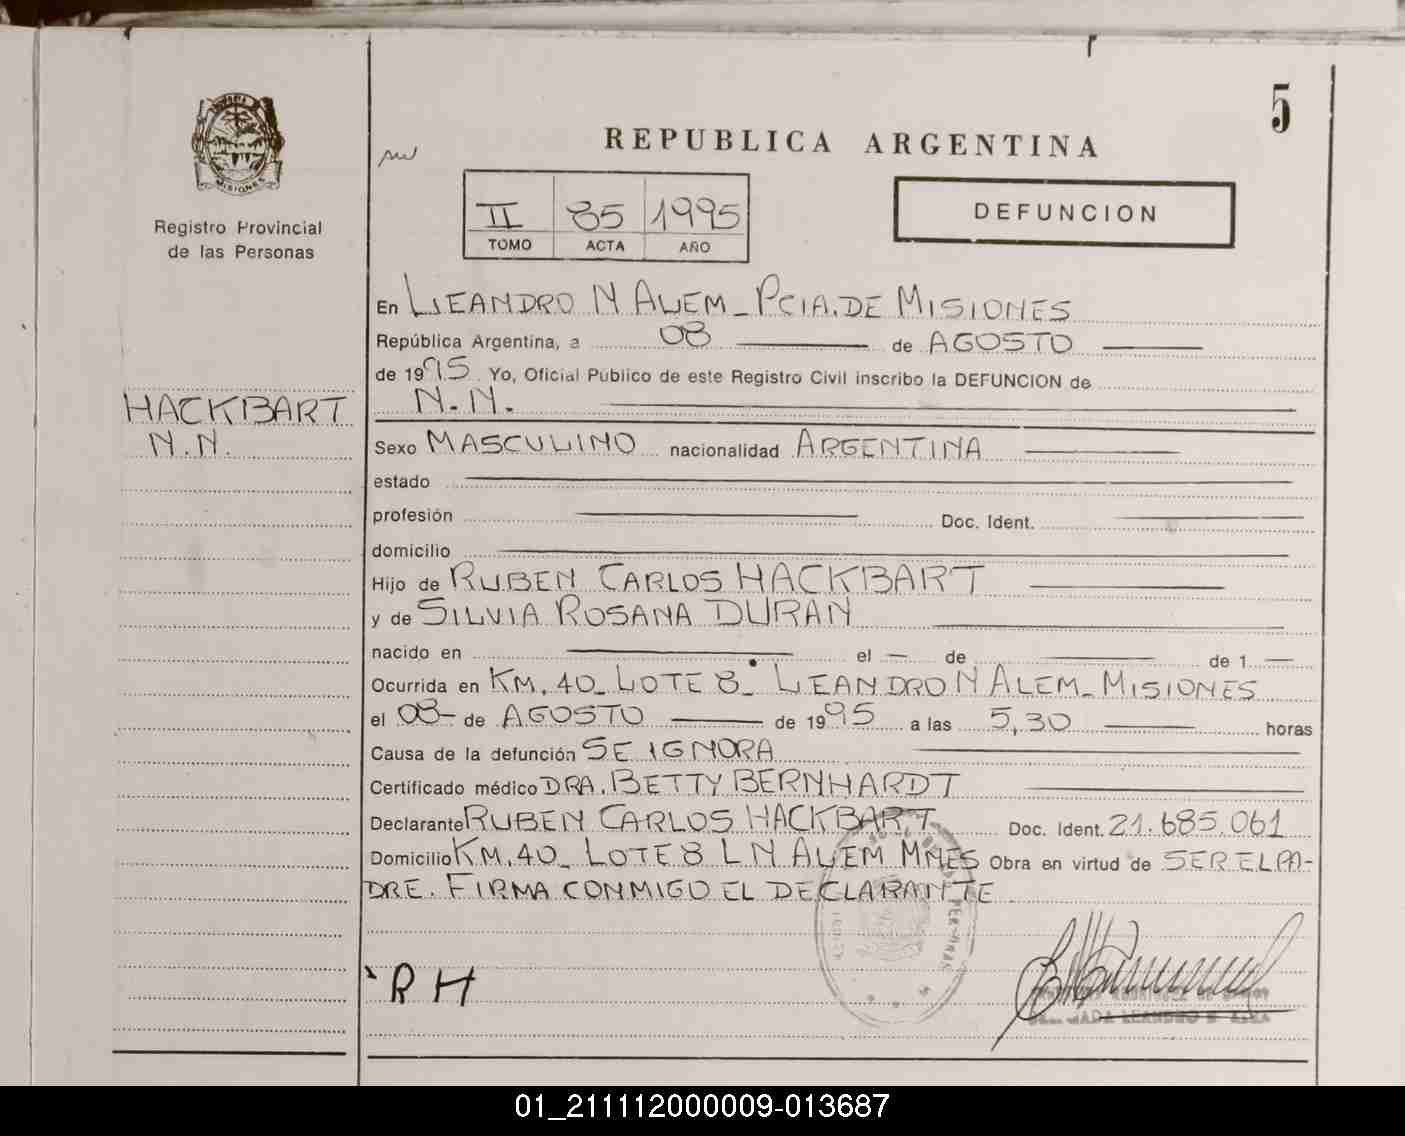 5
REPUBLICA ARGENTINA
MISIONES
Registro Provincial
de las Personas
II 85 1995
TOMO ACTA AÑO
DEFUNCION
En LEANDRO N ALEM - PCIA. DE MISIONES
República Argentina, a 08 de AGOSTO
de 1995 Yo, Oficial Público de este Registro Civil inscribo la DEFUNCION de
N.N.
HACKBART
N.N.
Sexo MASCULINO nacionalidad ARGENTINA
estado
profesión Doc. Ident.
domicilio
Hijo de RUBEN CARLOS HACKBART
y de SILVIA ROSANA DURAN
nacido en el — de de 1 —
Ocurrida en KM. 40 - LOTE 8 - LEANDRO N ALEM - MISIONES
el 08 - de AGOSTO de 1995 a las 5,30 horas
Causa de la defunción SE IGNORA
Certificado médico DRA. BETTY BERNHARDT
Declarante RUBEN CARLOS HACKBART Doc. Ident. 21.685.061
Domicilio KM. 40 - LOTE 8 L N ALEM MNES Obra en virtud de SER EL PA-
DRE. FIRMA CONMIGO EL DECLARANTE
R H
01_211112000009-013687